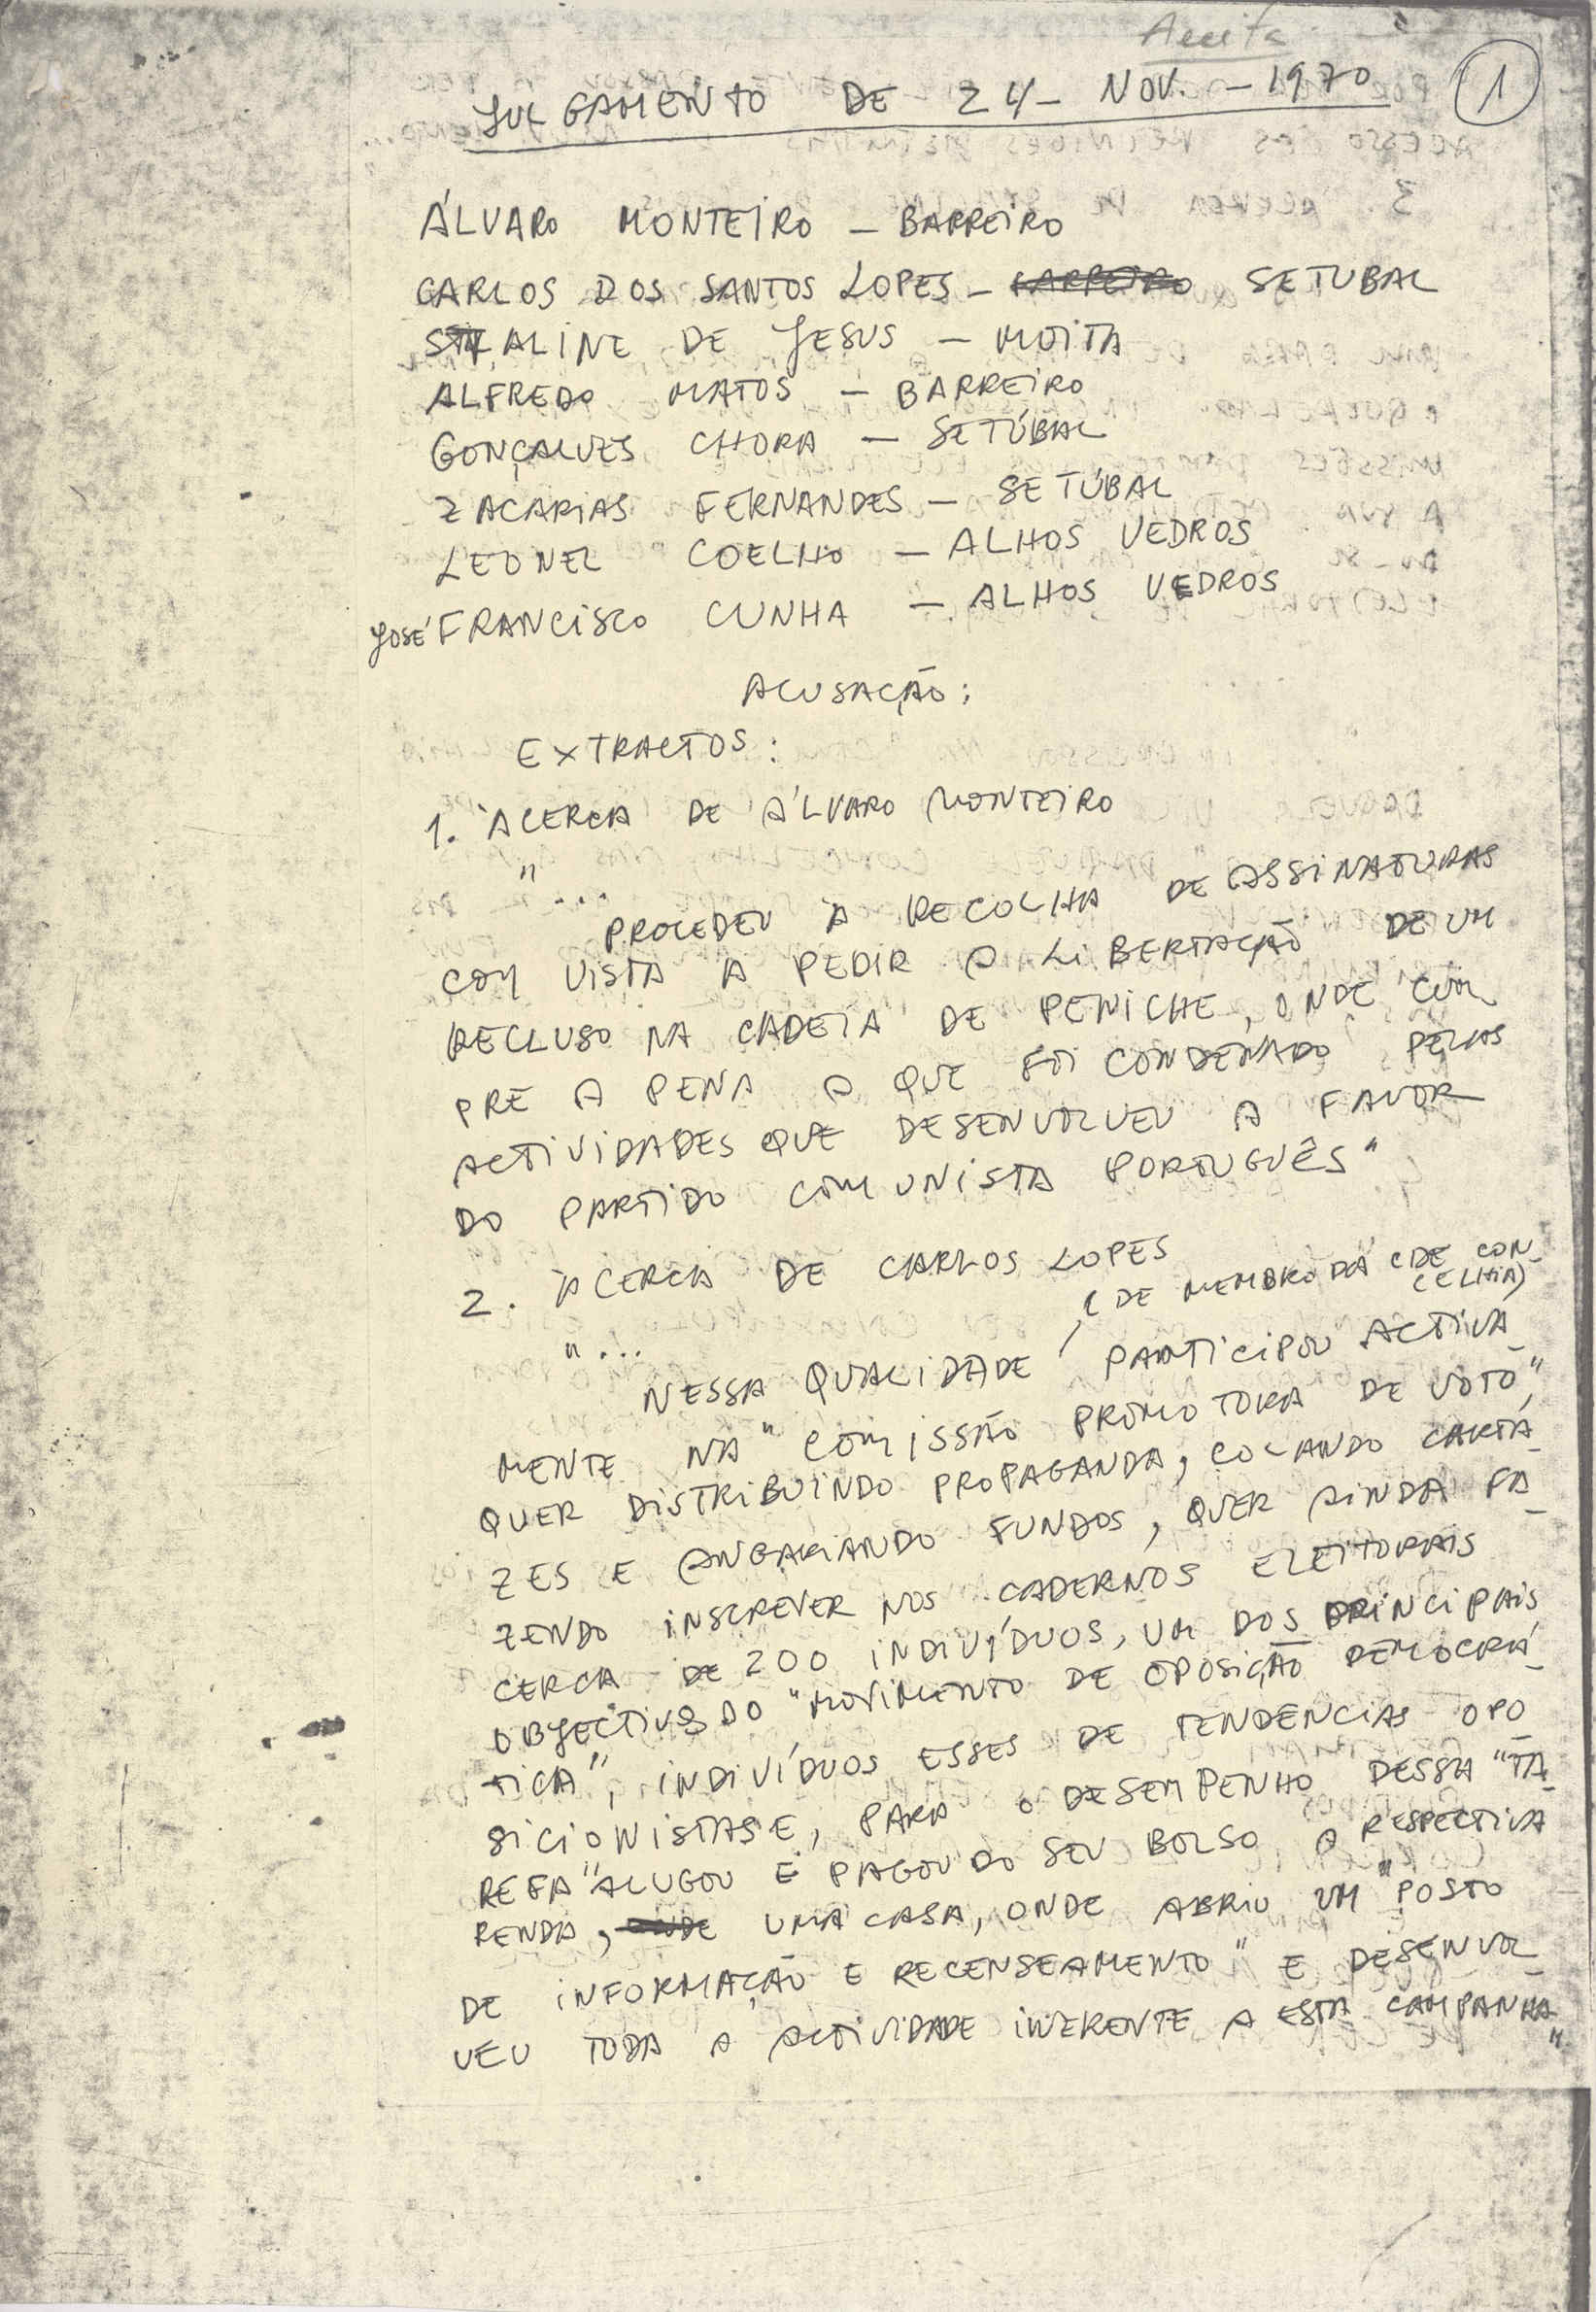 Aceita
JULGAMENTO DE 24 - NOV. - 1970 1
ÁLVARO MONTEIRO - BARREIRO
CARLOS DOS SANTOS LOPES - BARREIRO SETUBAL
STALINE DE JESUS - MOITA
ALFREDO MATOS - BARREIRO
GONÇALVES CHORA - SETÚBAL
ZACARIAS FERNANDES - SETÚBAL
LEONEL COELHO - ALHOS VEDROS
JOSÉ FRANCISCO CUNHA - ALHOS VEDROS
ACUSAÇÃO:
EXTRACTOS:
1. ÀCERCA DE ÁLVARO MONTEIRO
"...
PROCEDEU A RECOLHA DE ASSINATURAS
COM VISTA A PEDIR A LIBERTAÇÃO DE UM
RECLUSO NA CADEIA DE PENICHE, ONDE CUM
PRE A PENA A QUE FOI CONDENADO PELAS
ACTIVIDADES QUE DESENVOLVEU A FAVOR
DO PARTIDO COMUNISTA PORTUGUÊS"
2. ÀCERCA DE CARLOS LOPES
(DE MEMBRO DA CDE CON
CELHIA)
"...
NESSA QUALIDADE PARTICIPOU ACTIVA
MENTE NA "COMISSÃO PROMOTORA DE VOTO",
QUER DISTRIBUINDO PROPAGANDA, COLANDO CARTA
ZES E ANGARIANDO FUNDOS, QUER AINDA FA-
ZENDO INSCREVER NOS CADERNOS ELEITORAIS
CERCA DE 200 INDIVÍDUOS, UM DOS PRINCIPAIS
OBJECTIVOS DO "MOVIMENTO DE OPOSIÇÃO DEMOCRÁ-
TICA", INDIVÍDUOS ESSES DE TENDENCIAS OPO
SICIONISTAS E, PARA O DESEMPENHO DESSA "TA-
REFA" ALUGOU E PAGOU DO SEU BOLSO A RESPECTIVA
RENDA, ONDE UMA CASA, ONDE ABRIU UM "POSTO
DE INFORMAÇÃO E RECENSEAMENTO" E DESENVOL-
VEU TODA A ACTIVIDADE INERENTE A ESTA CAMPANHA"